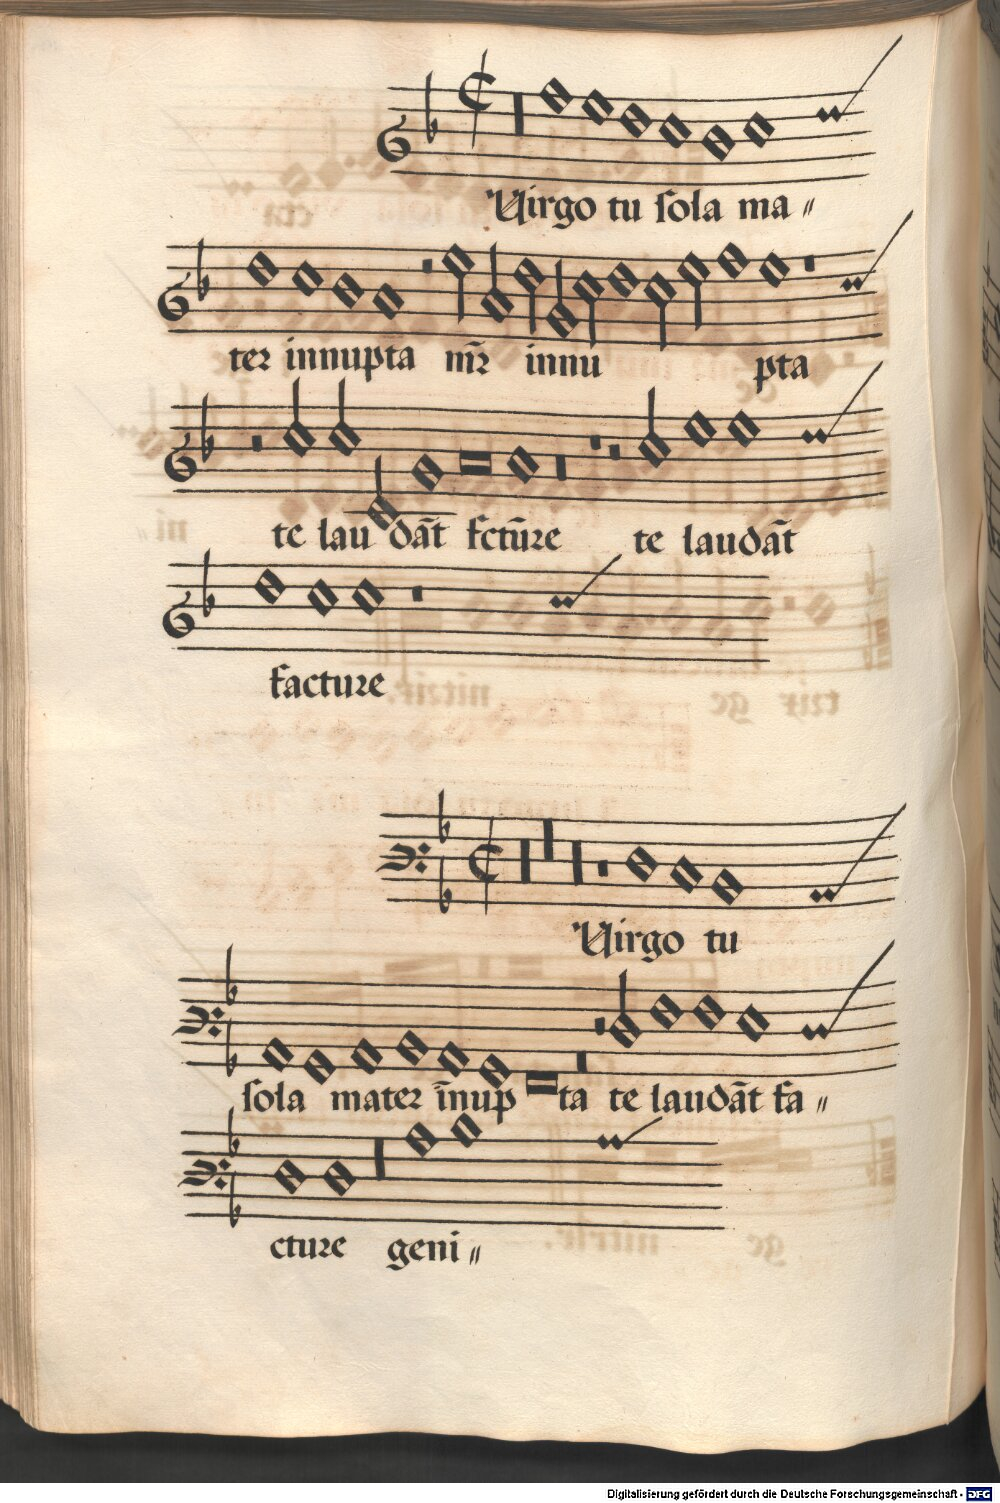 Virgo tu sola ma〃
ter innupta mr̄ innu pta
te lau dāt fctūre te laudāt
facture
Virgo tu
sola mater īnup ta te laudāt fa〃
cture geni〃
Digitalisierung gefördert durch die Deutsche Forschungsgemeinschaft - DFG